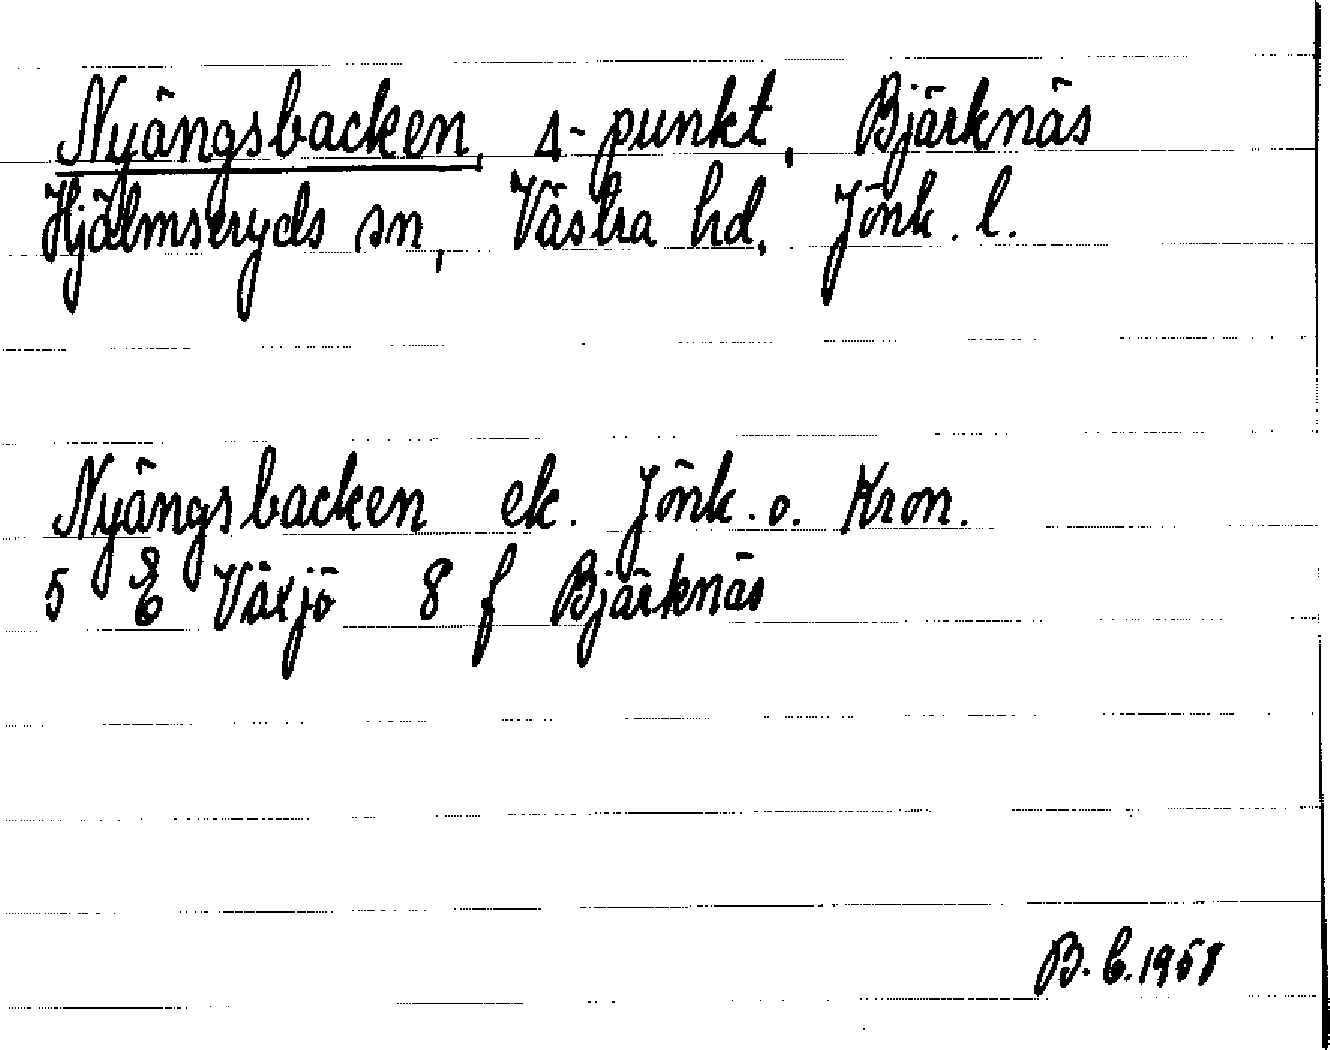 Nyängsbacken, Δ-punkt, Bjärknäs
Hjälmseryds sn, Västra hd, Jönk. l.
Nyängsbacken ek. Jönk. o. Kron.
5 E Växjö 8 f Bjärknäs
B. E. 1958